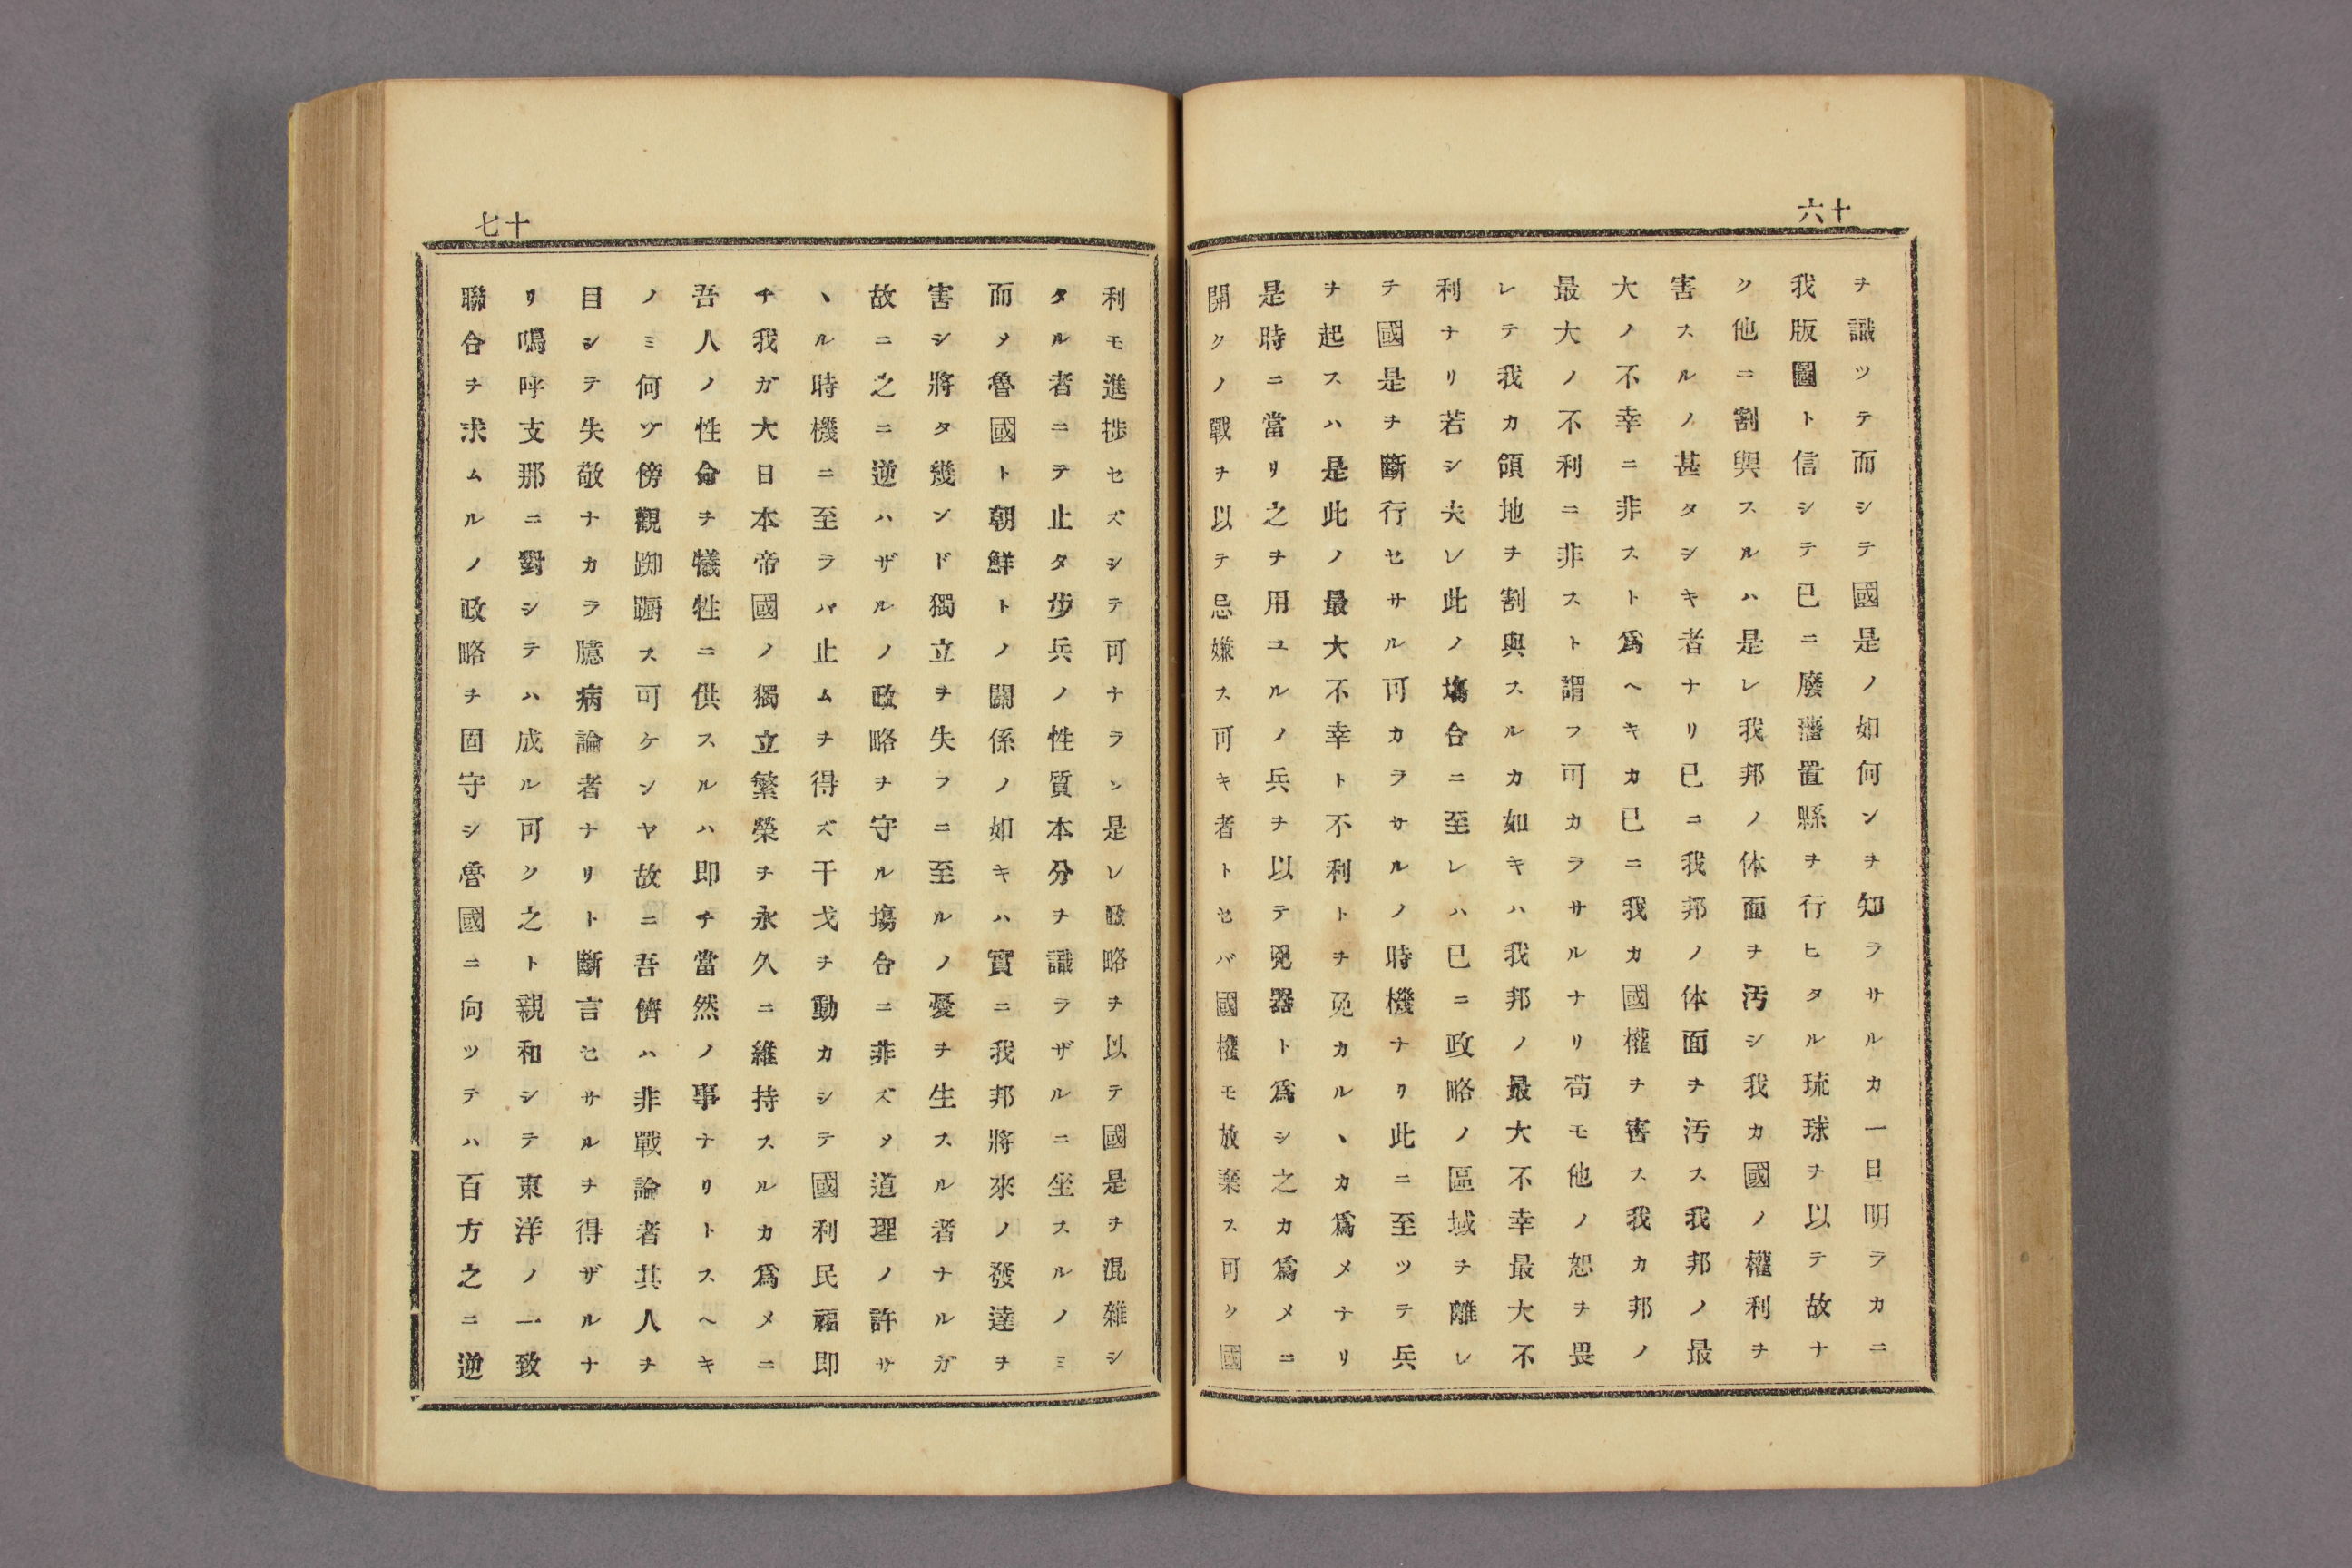 十六
ヲ識ツテ而シテ國是ノ如何ンヲ知ラサルカ一日明ラカニ
我版圖ト信シテ已ニ廢藩置縣ヲ行ヒタル琉球ヲ以テ故ナ
ク他ニ割與スルハ是レ我邦ノ体面ヲ汚シ我カ國ノ權利ヲ
害スルノ甚タシキ者ナリ已ニ我邦ノ体面ヲ汚ス我邦ノ最
大ノ不幸ニ非スト爲ヘキカ已ニ我カ國權ヲ害ス我カ邦ノ
最大ノ不利ニ非スト謂フ可カラサルナリ苟モ他ノ恕ヲ畏
レテ我カ領地ヲ割與スルカ如キハ我邦ノ最大不幸最大不
利ナリ若シ夫レ此ノ塲合ニ至レハ已ニ政略ノ區域ヲ離レ
テ國是ヲ斷行セサル可カラサルノ時機ナリ此ニ至ツテ兵
ヲ起スハ是此ノ最大不幸ト不利トヲ免カルヽカ爲メナリ
是時ニ當リ之ヲ用ユルノ兵ヲ以テ兇器ト爲シ之カ爲メニ
開クノ戰ヲ以テ忌嫌ス可キ者トセバ國權モ放棄ス可ク國
十七
利モ進捗セズシテ可ナラン是レ政略ヲ以テ國是ヲ混雜シ
タル者ニテ止タ歩兵ノ性質本分ヲ識ラザルニ坐スルノミ
而メ魯國ト朝鮮トノ關係ノ如キハ實ニ我邦將來ノ發達ヲ
害シ將タ幾ンド獨立ヲ失フニ至ルノ憂ヲ生スル者ナルガ
故ニ之ニ逆ハザルノ政略ヲ守ル塲合ニ非ズメ道理ノ許サ
ヽル時機ニ至ラバ止ムヲ得ズ干戈ヲ動カシテ國利民福即
チ我ガ大日本帝國ノ獨立繁榮ヲ永久ニ維持スルカ爲メニ
吾人ノ性命ヲ犧牲ニ供スルハ即チ當然ノ事ナリトスヘキ
ノミ何ヅ傍觀踟躕ス可ケンヤ故ニ吾儕ハ非戰論者其人ヲ
目シテ失敬ナカラ臆病論者ナリト斷言セサルヲ得ザルナ
リ嗚呼支那ニ對シテハ成ル可ク之ト親和シテ東洋ノ一致
聯合ヲ求ムルノ政略ヲ固守シ魯國ニ向ツテハ百方之ニ逆